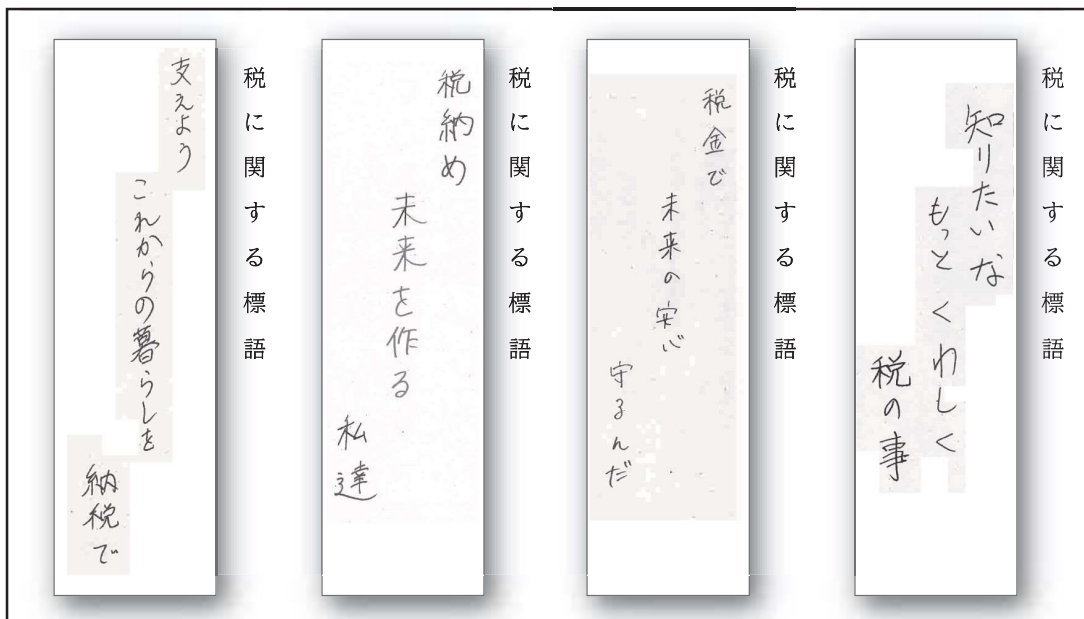 税に関する標語
知りたいな
もっとくわしく
税の事
税に関する標語
税金で
未来の安心
守るんだ
税に関する標語
税納め
未来を作る
私達
税に関する標語
支えよう
これからの暮らしを
納税で